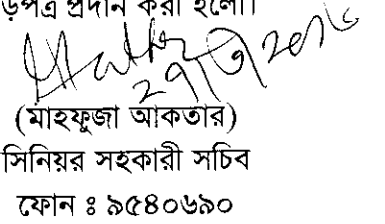 ড়পত্র প্রদান করা হলো।
২৭/৩/২০১৬
(মাহফুজা আকতার)
সিনিয়র সহকারী সচিব
ফোন ঃ ৯৫৪০৬৯০